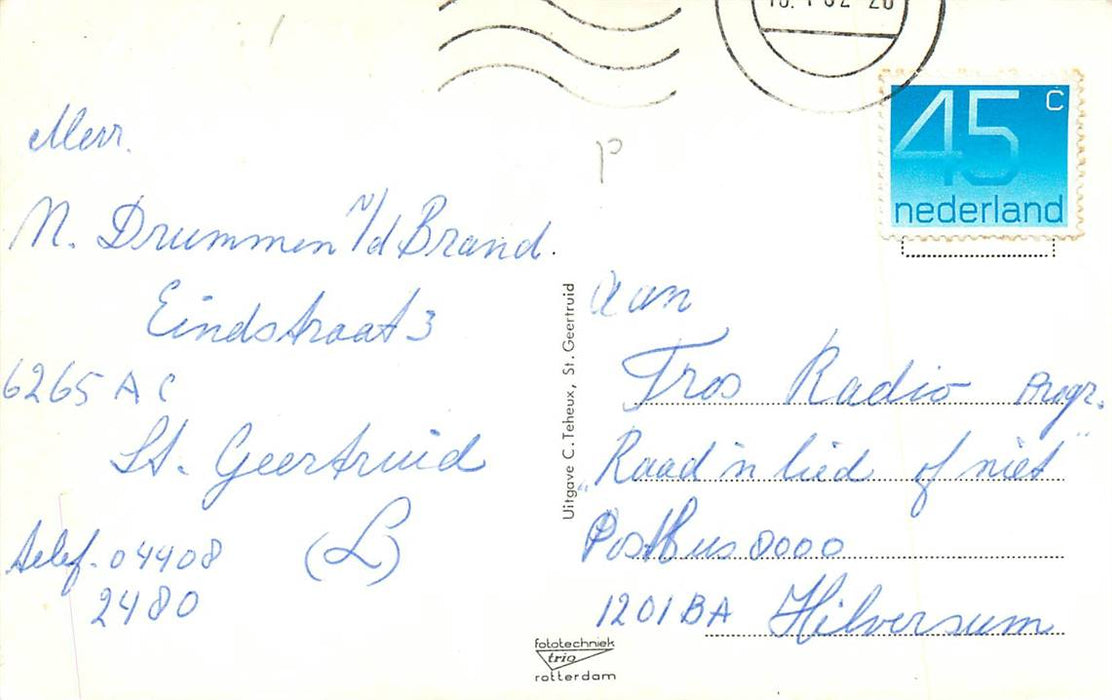 Merr.
N. Drummen v/d Brand.
Eindstraat 3
6265 AC
St. Geertruid
telef. 04408 (L)
2480
Uitgave C. Teheux, St. Geertruid
fototechniek
trio
rotterdam
P
45 c
nederland
aan
Tros Radio Progr.
„Raad 'n lied of niet"
PostBus 8000
1201 BA Hilversum